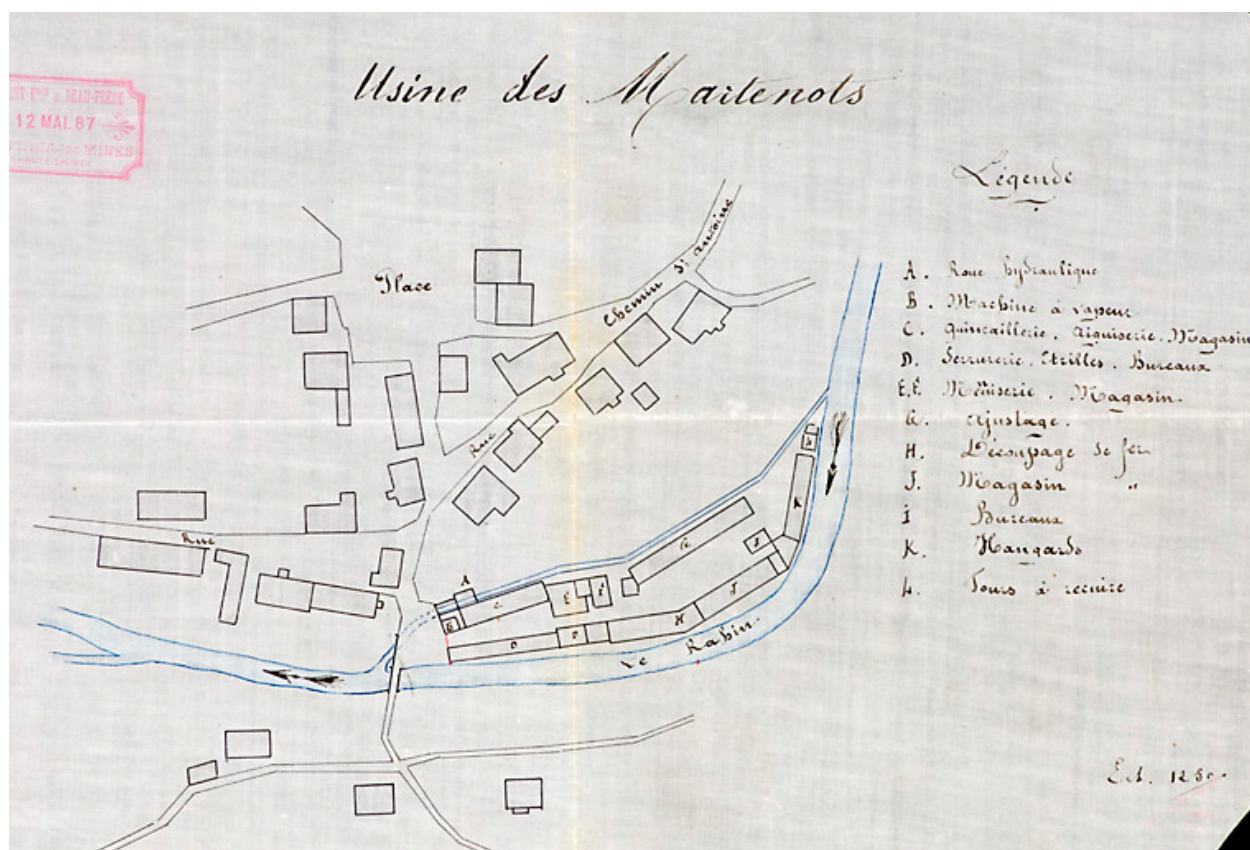 Usine des Martenots
12 MAI. 87
MINES
Légende
A. Roue hydraulique
B. Machine à vapeur
C. Quincaillerie. Aiguiserie. Magasin
D. Serrurerie. Etrilles. Bureaux
E.E'. Menuiserie. Magasin.
G. Ajustage.
H. Découpage de fer
J. Magasin "
I Bureaux
K. Hangards
L. Fours à recuire
Place
Chemin St Antoine
Rue
Rue
A
B
C
E
E'
G
K
D
H
J
Le Rahin
Ech. 1250